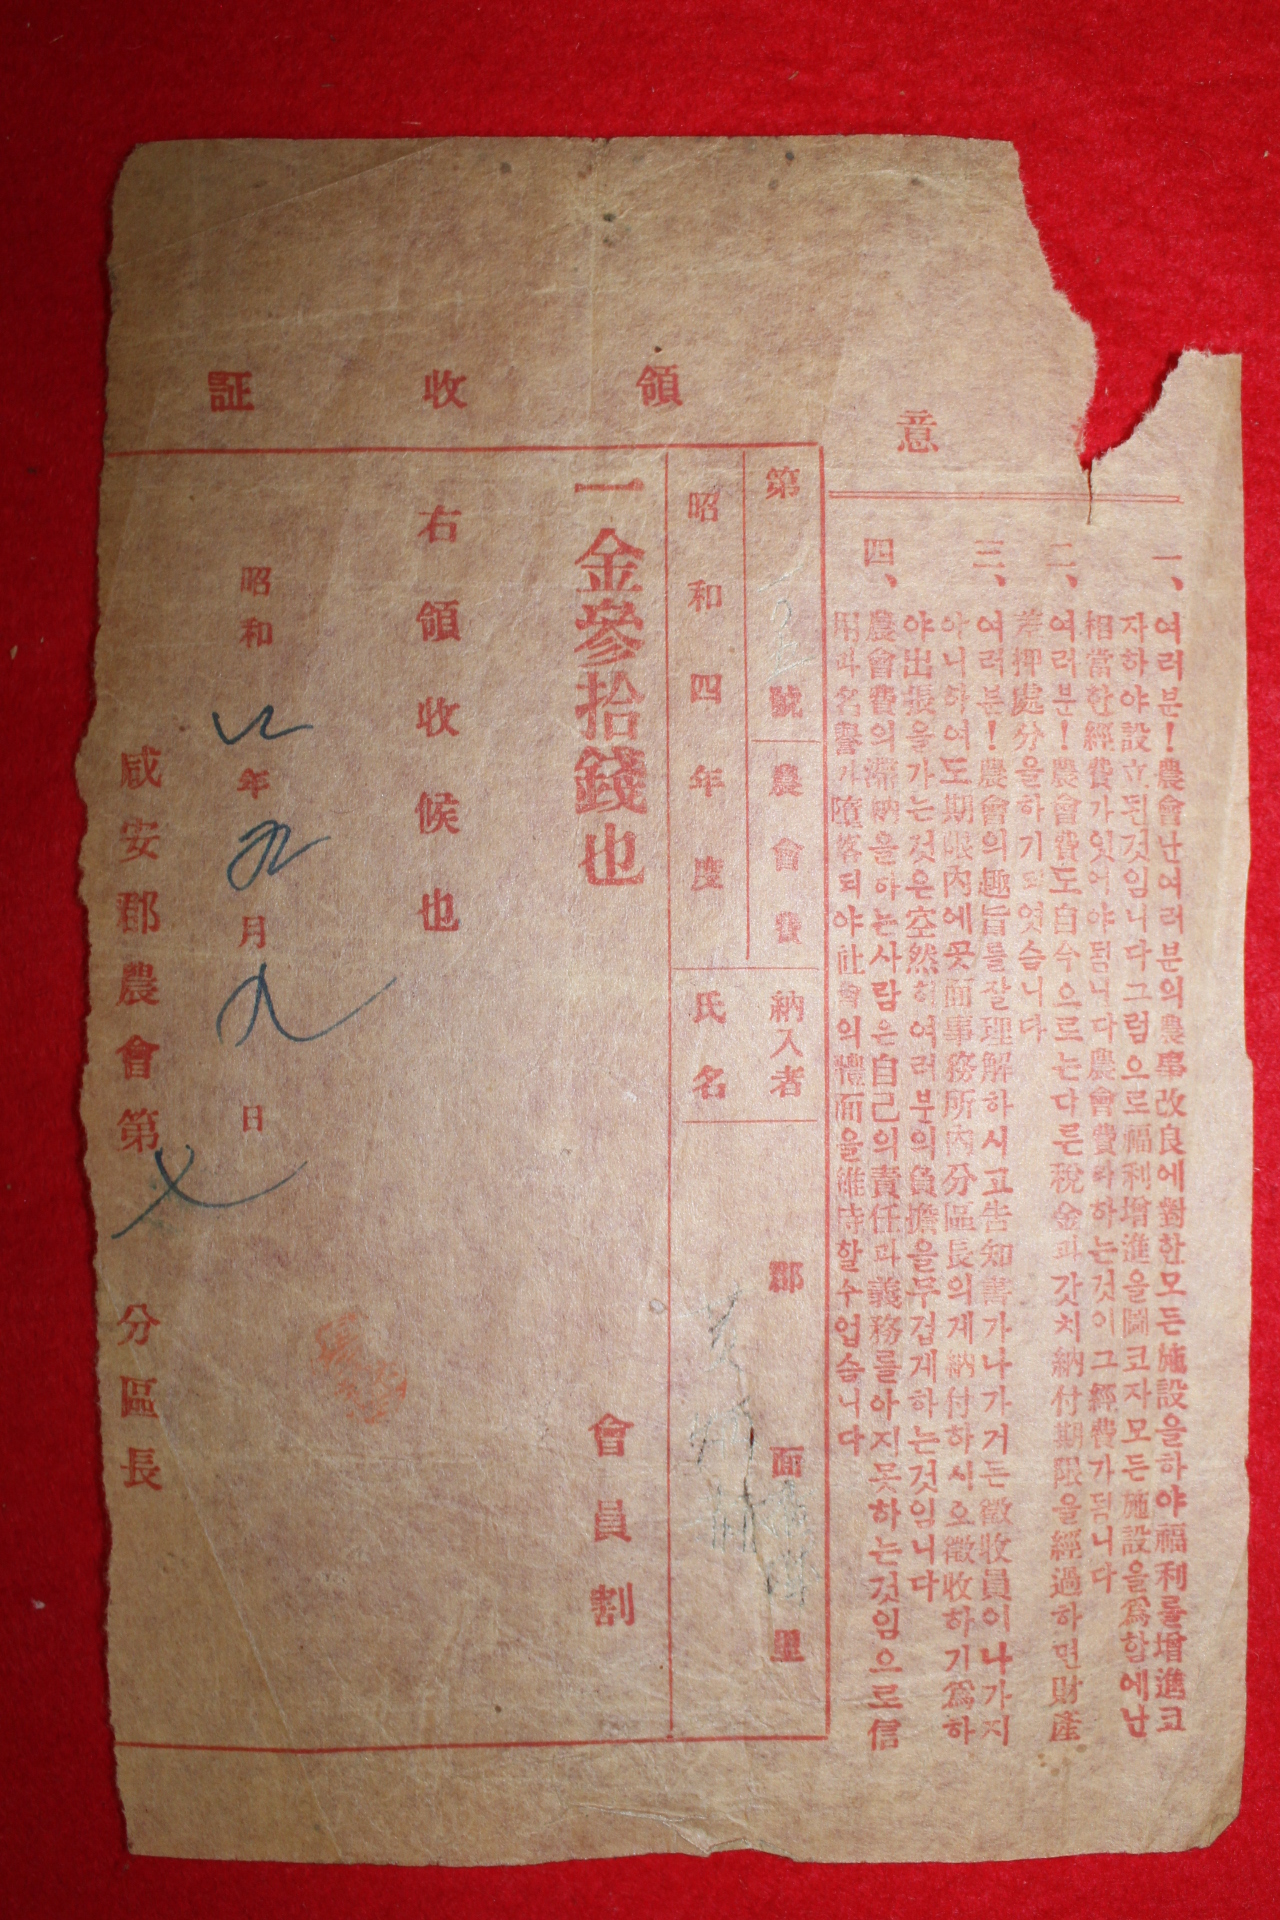 意
一、여러분！農會난여러분의農事改良에對한모든施設을하야福利를增進코
자하야設立된것임니다그럼으로福利增進을圖코자모든施設을爲함에난
相當한經費가잇어야됨니다農會費라하는것이그經費가됨니다
二、여러분！農會費도自今으로는다른稅金과갓치納付期限을經過하면財產
差押處分을하기되엿슴니다
三、여러분！農會의趣旨를잘理解하시고告知書가나가거든徵收員이나가지
아니하여도期限內에못面事務所內分區長의게納付하시오徵收하기爲하
야出張을가는것은空然히여러분의負擔을무겁게하는것임니다
四、農會費의滯納을하는사람은自己의責任과義務를아지못하는것임으로信
用과名譽가墮落되야社會의禮面을維持할수업슴니다
領收証
第 號 農會費 納入者 郡 面 里
昭和四年度 氏名
一金參拾錢也 會員割
右領收候也
昭和 年 月 日
咸安郡農會第 分區長